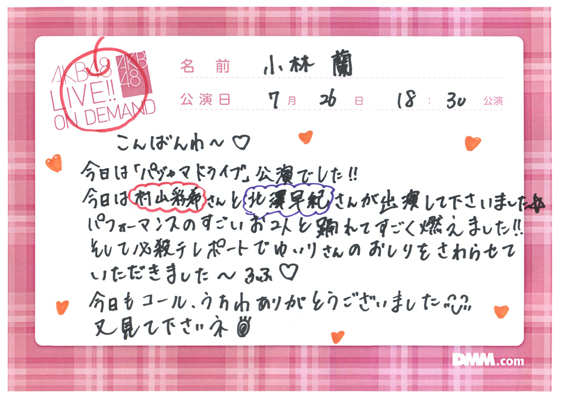 AKB48
LIVE!!
ON DEMAND
AKB
48
名前 小林 蘭
公演日 7月 26日 18:30 公演
こんばんわ〜♡
今日は「パジャマドライブ」公演でした!!
今日は村山彩希さんと北澤早紀さんが出演して下さいました☆
パフォーマンスのすごいお2人と踊れてすごく燃えました!!
そして必殺テレポートでゆいりさんのおしりをさわらせて
いただきました〜るふ♡
今日もコール、うちわありがとうございました
又見て下さいネ
DMM.com